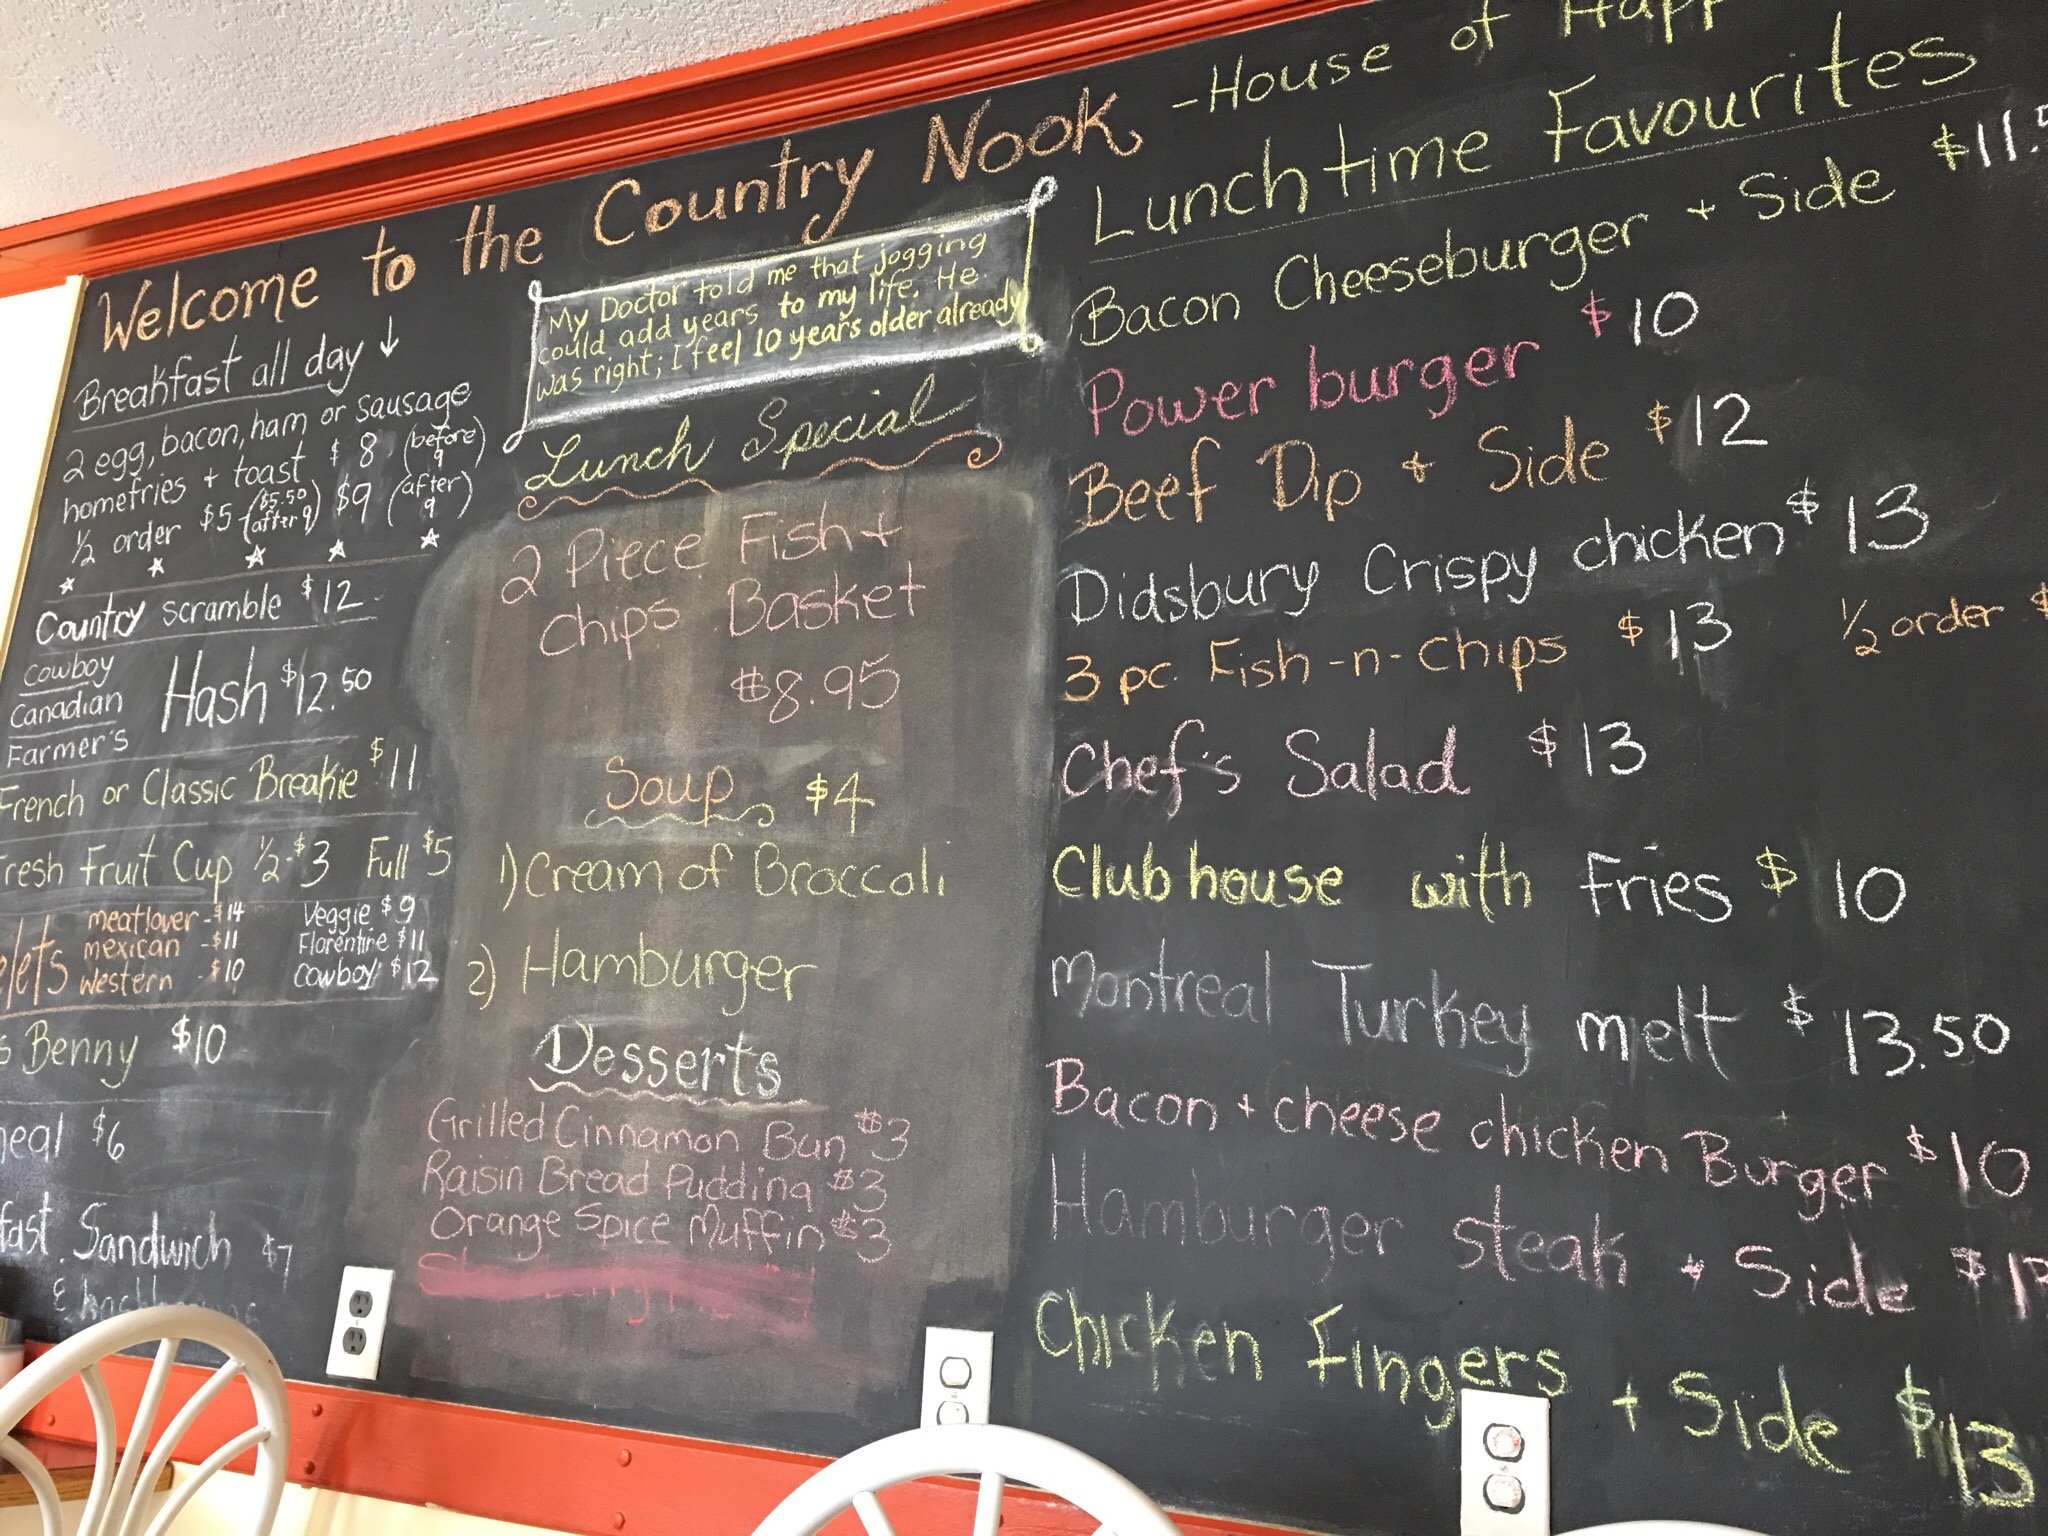 Welcome to the Country Nook - House of
Breakfast all day ↓
2 egg, bacon, ham or sausage
homefries + toast $8 (before 9)
1/2 order $5 ($5.50 after 9) $9 (after 9)
Country scramble $12
Cowboy
Canadian Hash $12.50
Farmer's
French or Classic Breakie $11
Fresh Fruit Cup 1/2-$3 Full $5
meatlover-$14 Veggie $9
mexican -$11 Florentine $11
western -$10 cowboy $12
Benny $10
$6
Sandwich $7
My Doctor told me that jogging
could add years to my life. He
was right; I feel 10 years older already
Lunch Special
2 Piece Fish +
chips Basket
$8.95
Soup $4
1) Cream of Broccoli
2) Hamburger
Desserts
Grilled Cinnamon Bun $3
Raisin Bread Pudding $3
Orange Spice Muffin $3
Lunchtime Favourites
Bacon Cheeseburger + Side
Power burger $10
Beef Dip + Side $12
Didsbury Crispy chicken $13
3 pc. Fish-n-Chips $13 1/2 order $
Chef's Salad $13
Clubhouse with Fries $10
Montreal Turkey melt $13.50
Bacon + cheese chicken Burger $10
Hamburger steak + Side
Chicken Fingers + Side $13